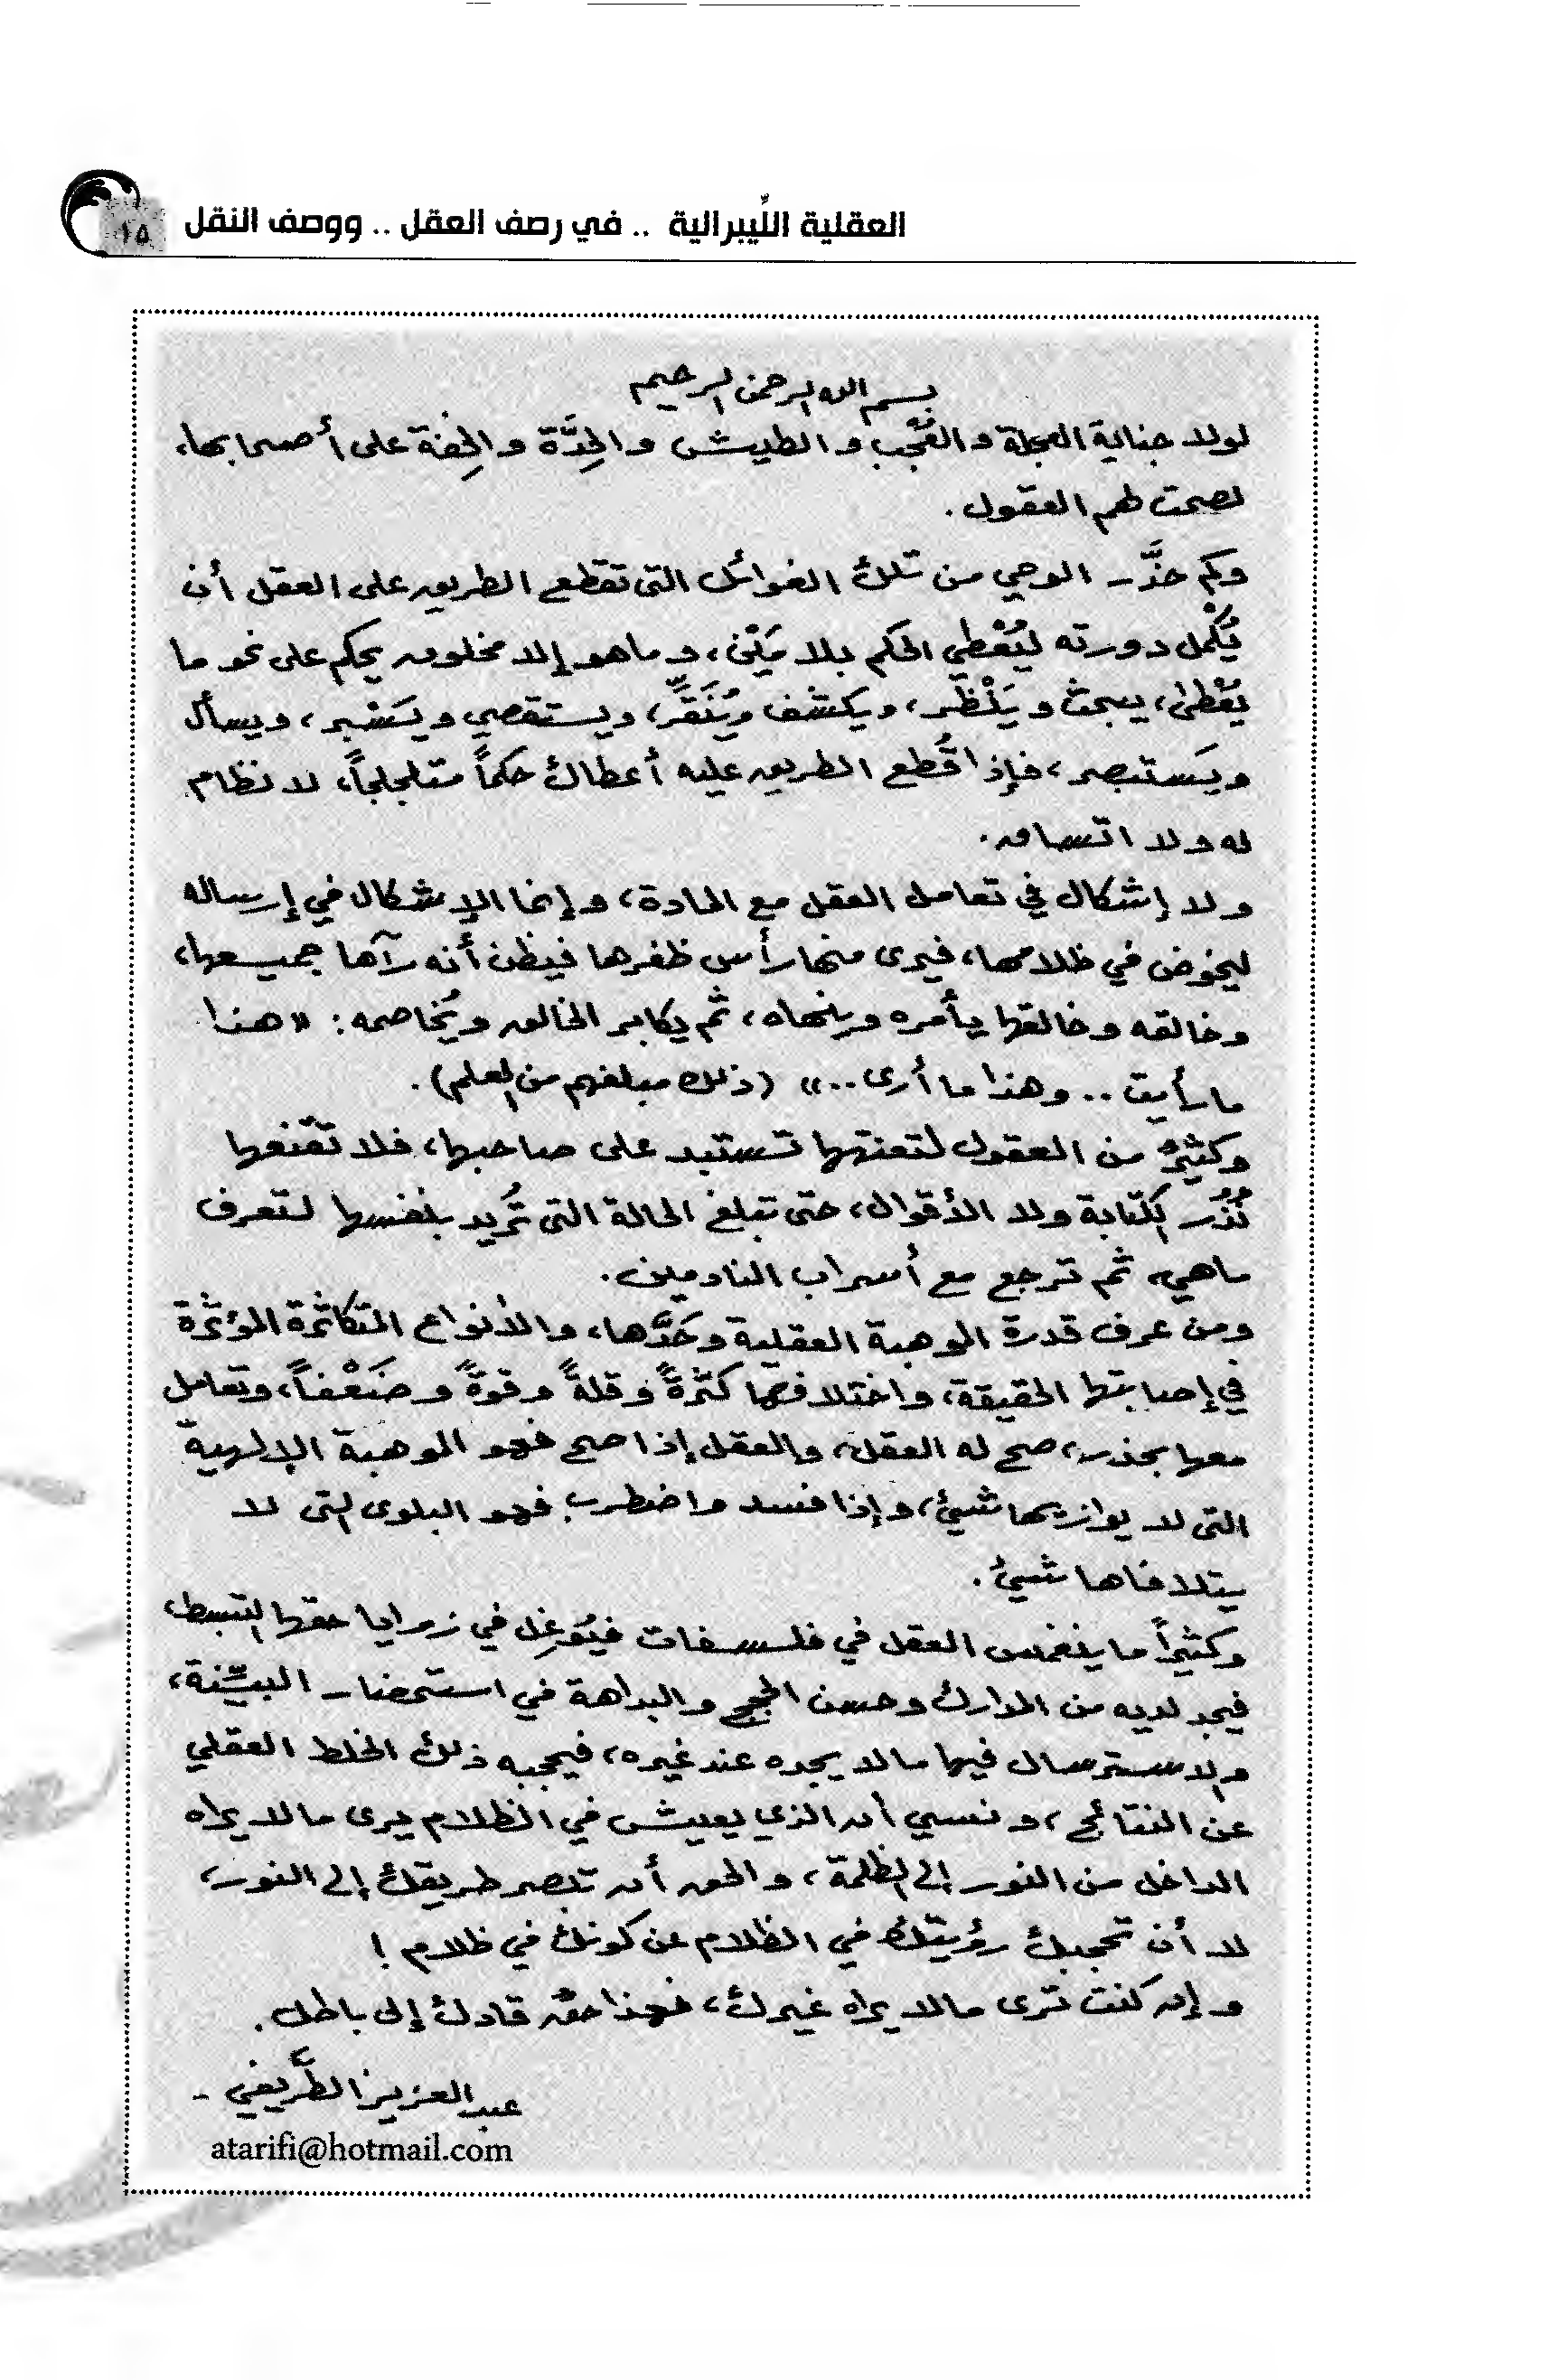 العقلية اللِّيبرالية .. في رصف العقل .. ووصف النقل ١٥
بسم الله الرحمن الرحيم
لولا جناية العجلة والعُجْب والطيش والحِدَّة والخِفة على أصحابها،
لصحت لهم العقول.
وكم حذَّر الوحي من تلك الغوائل التي تقطع الطريق على العقل أن
يُكْمل دورته ليُعْطي الحكم بلا مَيْن، وما هو إلا مخلوق يحكم على نحو ما
يُعْطىٰ، يبحث ويَنْظُر، ويكشف ويُنَقِّر، ويستقصي ويَسْبر، ويسأل
ويَستبصر، فإذا قُطع الطريق عليه أعطاك حكماً متلجلجاً، لا نظام
له ولا اتساق.
ولا إشكال في تعامل العقل مع المادة، وإنما الإشكال في إرساله
ليخوض في ظلامها، فيرى منها رأس ظفرها فيظن أنه رآها جميعها،
وخالقه وخالقها يأمره وينهاه، ثم يكابر الخالق ويُخاصمه: «هذا
ما رأيت .. وهذا ما أرى ..» (ذلك مبلغهم من العلم).
وكثيرٌ من العقول لتعنتها تستبد على صاحبها، فلا تقنعها
نُذُر الكتابة ولا الأقوال، حتى تبلغ الحالة التي تُريد بنفسها لتعرف
ماهي، ثم ترجع مع أسراب النادمين.
ومن عرف قدرة الموهبة العقلية وحَدَّها، والأنواع المتكاثرة المؤثرة
في إصابتها الحقيقة، واختلافها كثرةً وقلةً وقوةً وضَعْفاً، وتعامل
معها بحذر، صح له العقل، والعقل إذا صح فهو الموهبة الإلهية
التي لا يوازيها شيئ، وإذا فسد واضطرب فهو البلوى التي لا
يتلافاها شيئ.
وكثيراً ما ينغمس العقل في فلسفات فيُوغِل في زوايا حقها التبسط،
فيجد لديه من المدارك وحسن الحجج والبداهة في استحضار البيِّنة،
والاسترسال فيها مالا يجده عند غيره، فيحجبه ذلك الخلط العقلي
عن النتائج، ونسي أن الذي يعيش في الظلام يرى مالا يراه
الداخل من النور إلى الظلمة، والحق أن تبصر طريقك إلى النور،
لا أن تحجبك رؤيتك في الظلام عن كونك في ظلام !
وإن كنت ترى مالا يراه غيرك، فهذا حق قادك إلى باطل.
عبدالعزيز الطَّريفي -
atarifi@hotmail.com